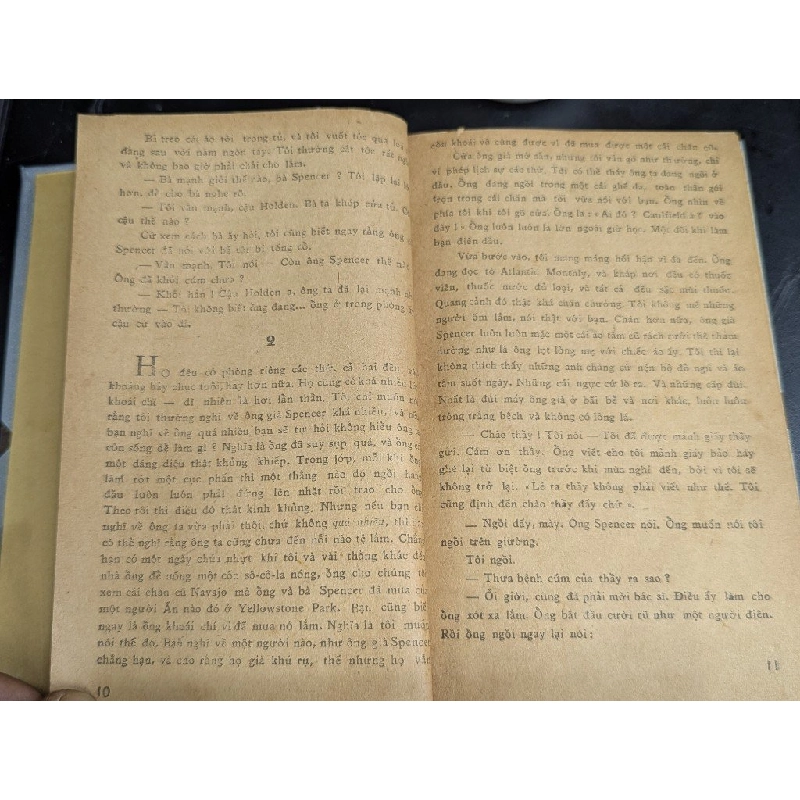 Bà treo cái áo tôi trong tủ, và tôi vuốt tóc qua
đàng sau với năm ngón tay. Tôi thường cắt tóc rất
và không bao giờ phải chải cho lắm.
— Bà mạnh giỏi thế nào, bà Spencer ? Tôi lặp lại
hơn, để cho bà nghe rõ.
— Tôi vẫn mạnh, cậu Holden. Bà ta khép cửa tủ.
cậu thế nào ?
Cứ xem cách bà ấy hỏi, tôi cũng biết ngay rằng ông
Spencer đã nói với bà tôi bị tống cổ.
— Vẫn mạnh. Tôi nói — Còn ông Spencer thế
Ông đã khỏi cúm chưa ?
— Khỏi hẳn ! Cậu Holden ạ, ông ta đã lại mạnh
thường — Tôi không biết ông đang... ông ở trong phòng
cậu cứ vào đi.
2
HỌ đều có phòng riêng các thứ. Cả hai đều
khoảng bảy chục tuổi, hay hơn nữa. Họ cũng có khá nhiều
khoái chí — dĩ nhiên là hơi lẩn thẩn. Tôi chỉ muốn
rằng tôi thường nghĩ về ông già Spencer khá nhiều, và nếu
bạn nghĩ về ông quá nhiều bạn sẽ tự hỏi không hiểu ông
còn sống để làm gì ? Nghĩa là ông đã suy sụp quá, và ông có
một dáng điệu thật khủng khiếp. Trong lớp, mỗi khi ông
làm rớt một cục phấn thì một thằng nào đó ngồi hàng
đầu luôn luôn phải đứng lên nhặt rồi trao cho ông.
Theo tôi thì điều đó thật kinh khủng. Nhưng nếu bạn chỉ
nghĩ về ông ta vừa phải thôi, chứ không quá nhiều, thì
có thể nghĩ rằng ông ta cũng chưa đến nỗi nào tệ lắm. Chẳng
hạn có một ngày chúa nhựt khi tôi và vài thằng khác đến
nhà ông để uống một cốc sô-cô-la nóng, ông cho chúng tôi
xem cái chăn cũ Navajo mà ông và bà Spencer đã mua của
một người Ấn nào đó ở Yellowstone Park. Bạn cũng biết
ngay là ông khoái chí vì đã mua nó lắm. Nghĩa là tôi muốn
nói thế đó. Bạn nghĩ về một người nào, như ông già Spencer
chẳng hạn, và cho rằng họ già khú rụ, thế nhưng họ vẫn
10
còn khoái vô cùng được vì đã mua được một cái chăn cũ.
Cửa ông già mở sẵn, nhưng tôi vẫn gõ như thường, chỉ
vì phép lịch sự các thứ. Tôi có thể thấy ông ta đang ngồi ở
đâu. Ông đang ngồi trong một cái ghế da, toàn thân gói
trọn trong cái chăn mà tôi vừa nói với bạn. Ông nhìn về
phía tôi khi tôi gõ cửa. Ông la : « Ai đó ? Caulfield ? Ế vào
đây ! » Ông luôn luôn la lớn ngoài giờ học. Một đôi khi làm
bạn điên đầu.
Vừa bước vào, tôi bỗng mang hối hận vì đã đến. Ông
đang đọc tờ Atlantic Montaly, và khắp nơi đều có thuốc
viên, thuốc nước đủ loại, và tất cả đều sặc mùi thuốc.
Quang cảnh đó thật khá chán chường. Tôi không ưa những
người ốm lắm, nói thật với bạn. Chán hơn nữa, ông già
Spencer luôn luôn mặc một cái áo tắm cũ rách rưới thê thảm
dường như là ông lọt lòng mẹ với chiếc áo ấy. Tôi thì lại
không thích thấy những anh chàng cứ vận bộ đồ ngủ và áo
tắm suốt ngày. Những cái ngực cứ lồ ra. Và những cặp đùi.
Nhất là đùi mấy ông già ở bãi bể và nơi khác, luôn luôn
trông trắng bệch và không có lông lá.
— Chào thầy ! Tôi nói — Tôi đã được mảnh giấy thầy
gửi. Cám ơn thầy. Ông viết cho tôi mảnh giấy bảo hãy
ghé lại từ biệt ông trước khi mùa nghỉ đến, bởi vì tôi sẽ
không trở lại. «Lẽ ra thầy không phải viết như thế. Tôi
cũng định đến chào thầy đấy chứ ».
— Ngồi đấy, mày. Ông Spencer nói. Ông muốn nói tôi
ngồi trên giường.
Tôi ngồi.
— Thưa bệnh cúm của thầy ra sao ?
— Ối giời, cũng đã phải mời bác sĩ. Điều ấy làm cho
ông xót xa lắm. Ông bắt đầu cười rũ như một người điên.
Rồi ông ngồi ngay lại nói :
11